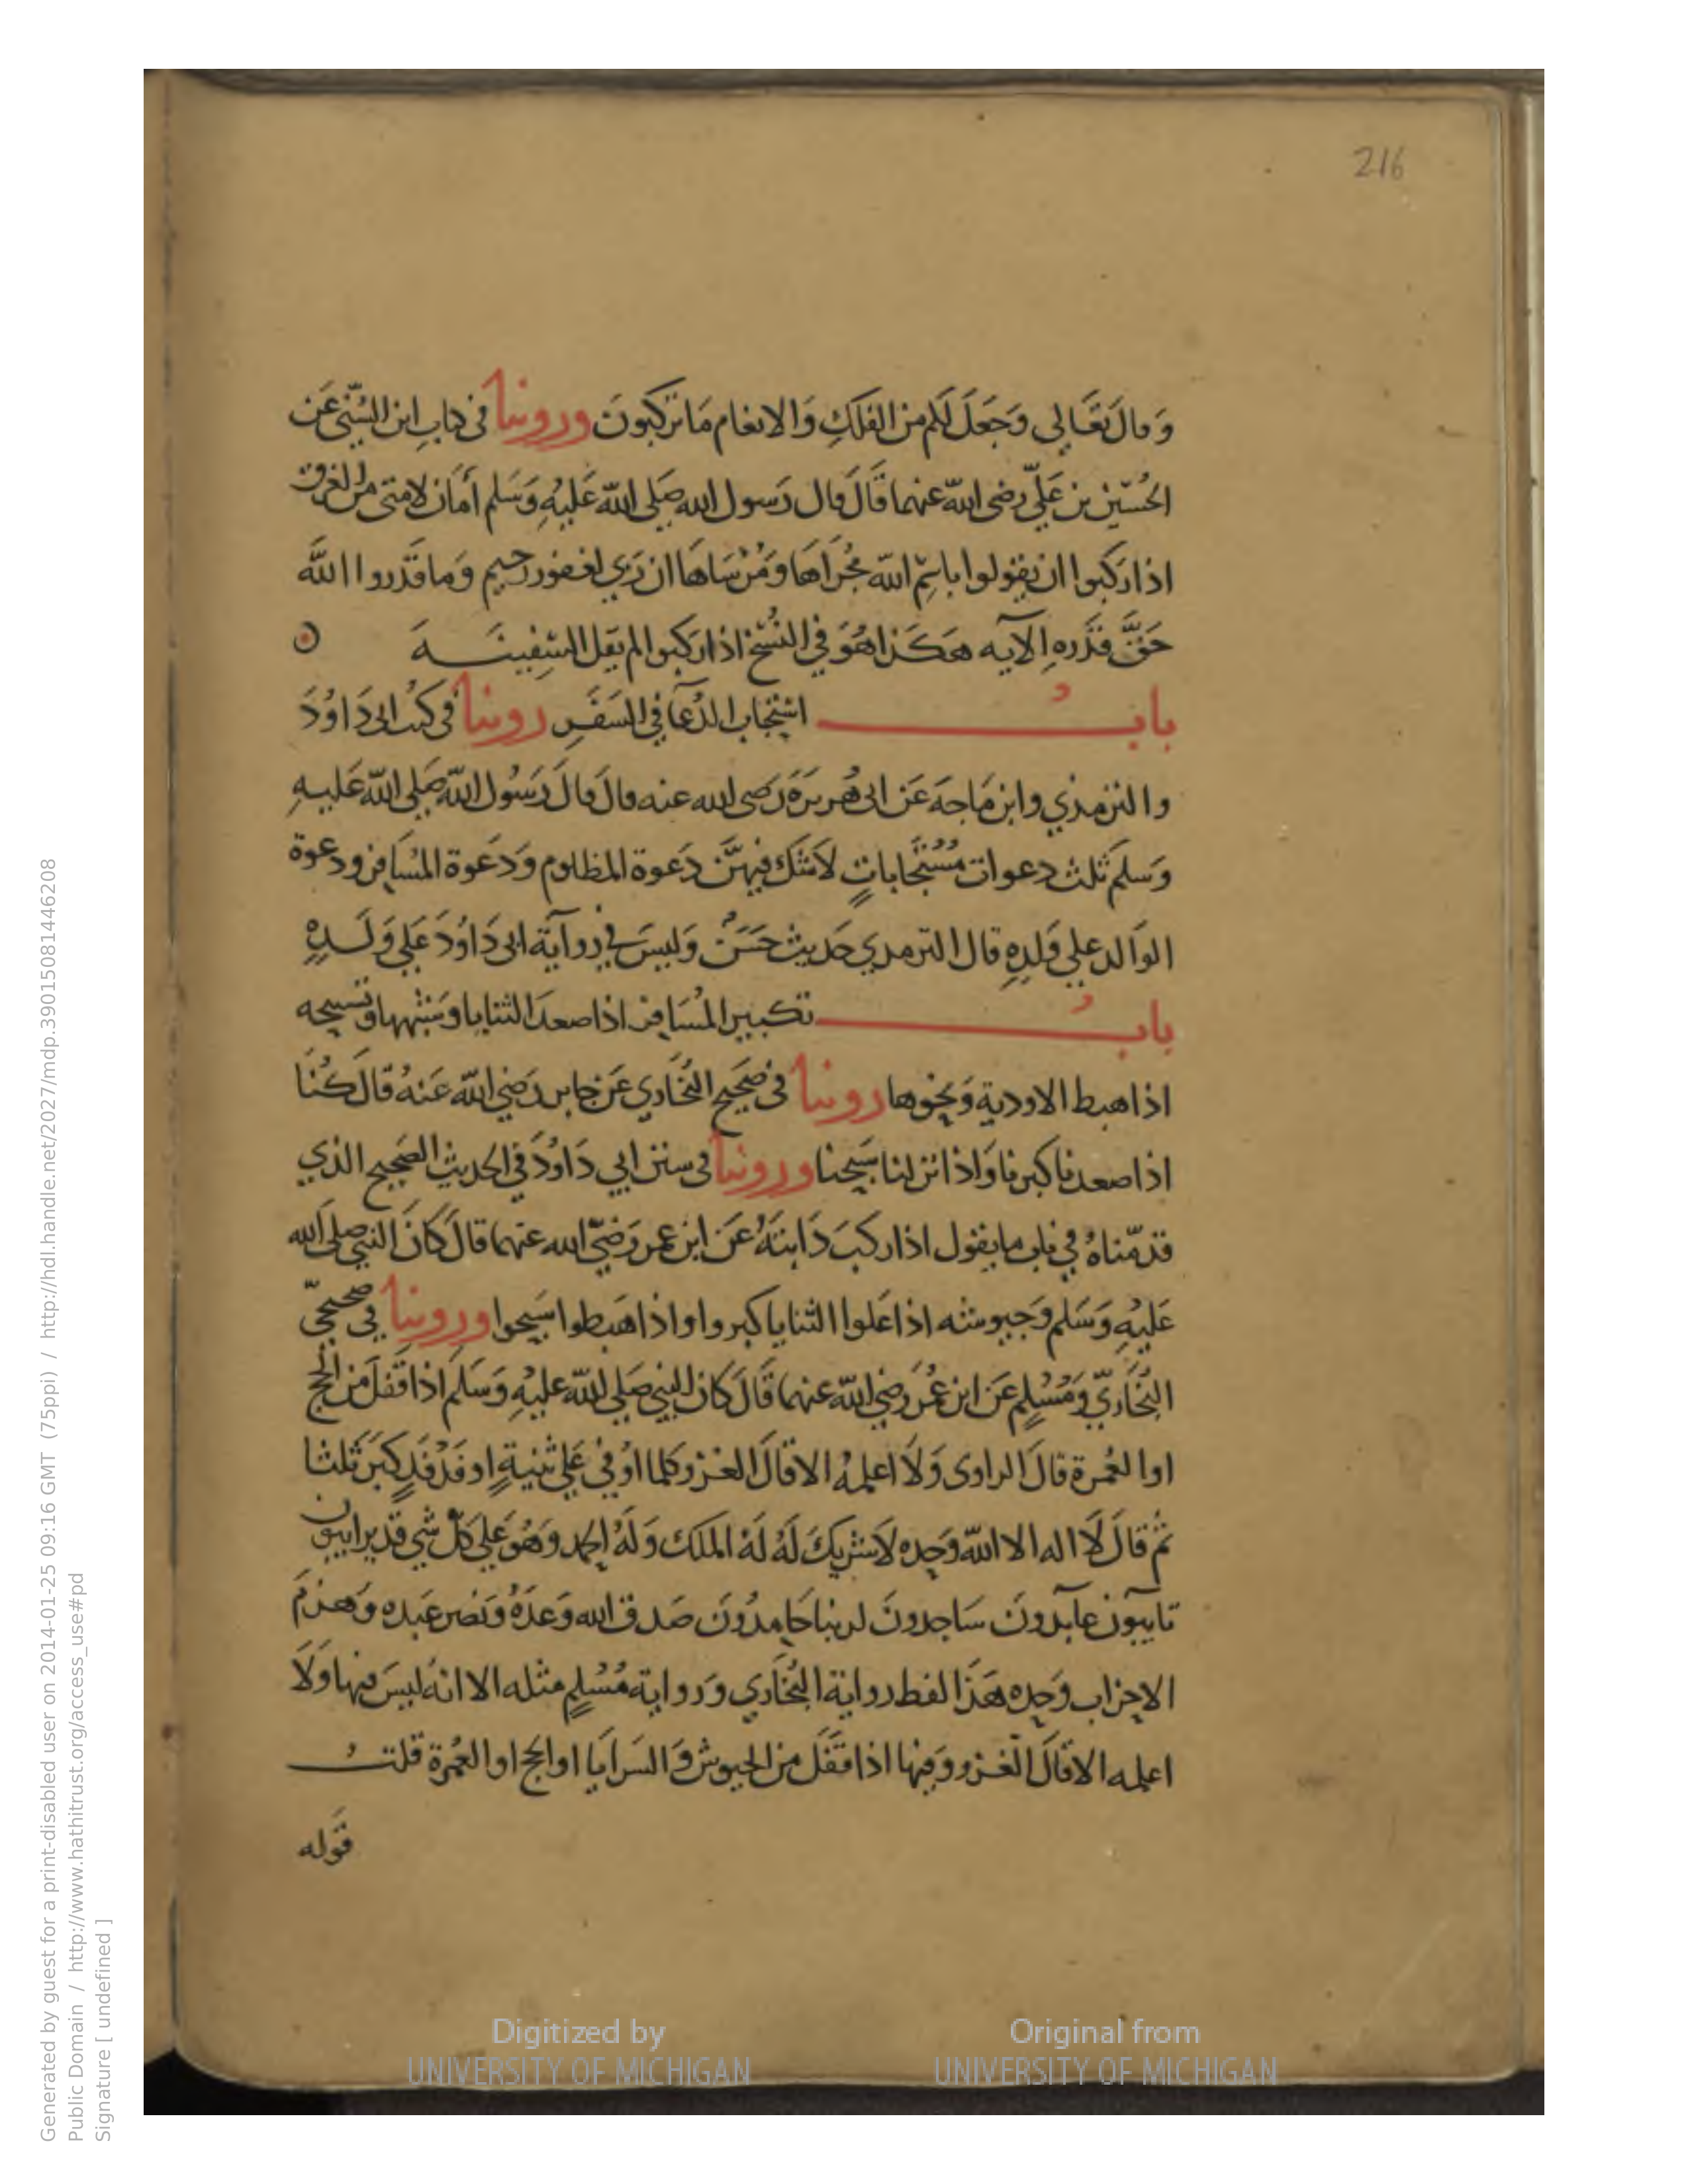 216
وَقالَ تَعَالى وَجَعَلَ لَكم من الفلكِ وَالانعام مَا تركبونَ وروينا في كتابِ ابن السُّنّي عَن
الحُسَين بن عَليّ رضى الله عنهما قَالَ قال رَسول الله صَلى الله عَليْهِ وَسَلم أمَان لامتي من الغرق
اذا ركبوا ان يقولوا باسْمِ الله مُجرَاهَا وَمُرْسَاهَا ان رَبي لغفور رحيم وَما قَدَروا الله
حَقَّ قَدْرهِ الآيه هَكَذا هُوَ في النُسَخ اذا ركبوا لم يقل السَّفِينَـــة
بابُ استِجَاب الدُعَآ في السَفَرِ روينا في كتُب ابى دَاوُدَ
والترمذي وابن مَاجهَ عَن ابى هُريرَة رَضى الله عنه قال قالَ رَسُول الله صَلى الله عَليهِ
وَسَلم ثَلث دعوات مُسْتَجَاباتٍ لاشك فيهنَّ دَعوة المظلوم وَدَعوة المُسَافر ودعوة
الوَالد علي وَلدِهِ قال الترمدي حَديث حَسَنٌ وَليسَ في روآية ابى دَاوُدَ عَلي وَلَدِهِ
بابُ تكبير المُسَافر اذا صعدَ الثنايا وَشبْهها وتسبيحه
اذا هبط الاودية وَنحوها روينا في صَحيح البُخَاري عَن جابر رَضي الله عَنهُ قالَ كُنَا
اذا صعدنا كبرنا وَاذا نزلنا سَبَّحنا وروينا في سنن ابي دَاوُدَ في الحديث الصَحيح الذي
قدمّناهُ في باب ما يقول اذا ركبَ دَابتَهُ عَن ابن عمر رَضيَ الله عنهما قالَ كَانَ النبي صلى الله
عَليْهِ وَسَلم وَجيوشه اذا عَلوا الثنايا كبروا واذا هَبطوا سَبحوا وروينا في صَحيحَيّ
البُخَاريّ وَمُسْلمٍ عَن ابن عُمَر رَضي الله عنهما قَالَ كانَ النبي صَلى الله عَليْهِ وَسَلم اذا قَفلَ من الحَج
او العُمرة قالَ الراوى وَلَا اعلمهُ الا قالَ الغـزو كلما اوْفي عَلي ثنيةٍ او فَدْفَدٍ كبَرَ ثلثا
ثم قالَ لَا اله الا الله وَحده لَا شريكَ لَهُ لَهُ الملك وَلَهُ الحمد وَهُوَ عَلي كلّ شي قدير ايبون
تايبون عابدونَ سَاجدونَ لربنا حَامدُونَ صَدق الله وَعدَهُ وَنصر عَبده وَهَزمَ
الاحزاب وَحده هَذَا لفط رواية البُخَاري وَرواية مُسْلمٍ مثله الا انهُ ليسَ فيها وَلَا
اعلمه الا قَالَ الغـزو وَفيها اذا قَفَل من الجيوش وَالسَرايَا او الحج او العُمرة قلتُ
قَوله
Digitized by UNIVERSITY OF MICHIGAN
Original from UNIVERSITY OF MICHIGAN
Generated by guest for a print-disabled user on 2014-01-25 09:16 GMT (75ppi) / http://hdl.handle.net/2027/mdp.39015081446208
Public Domain / http://www.hathitrust.org/access_use#pd
Signature [ undefined ]